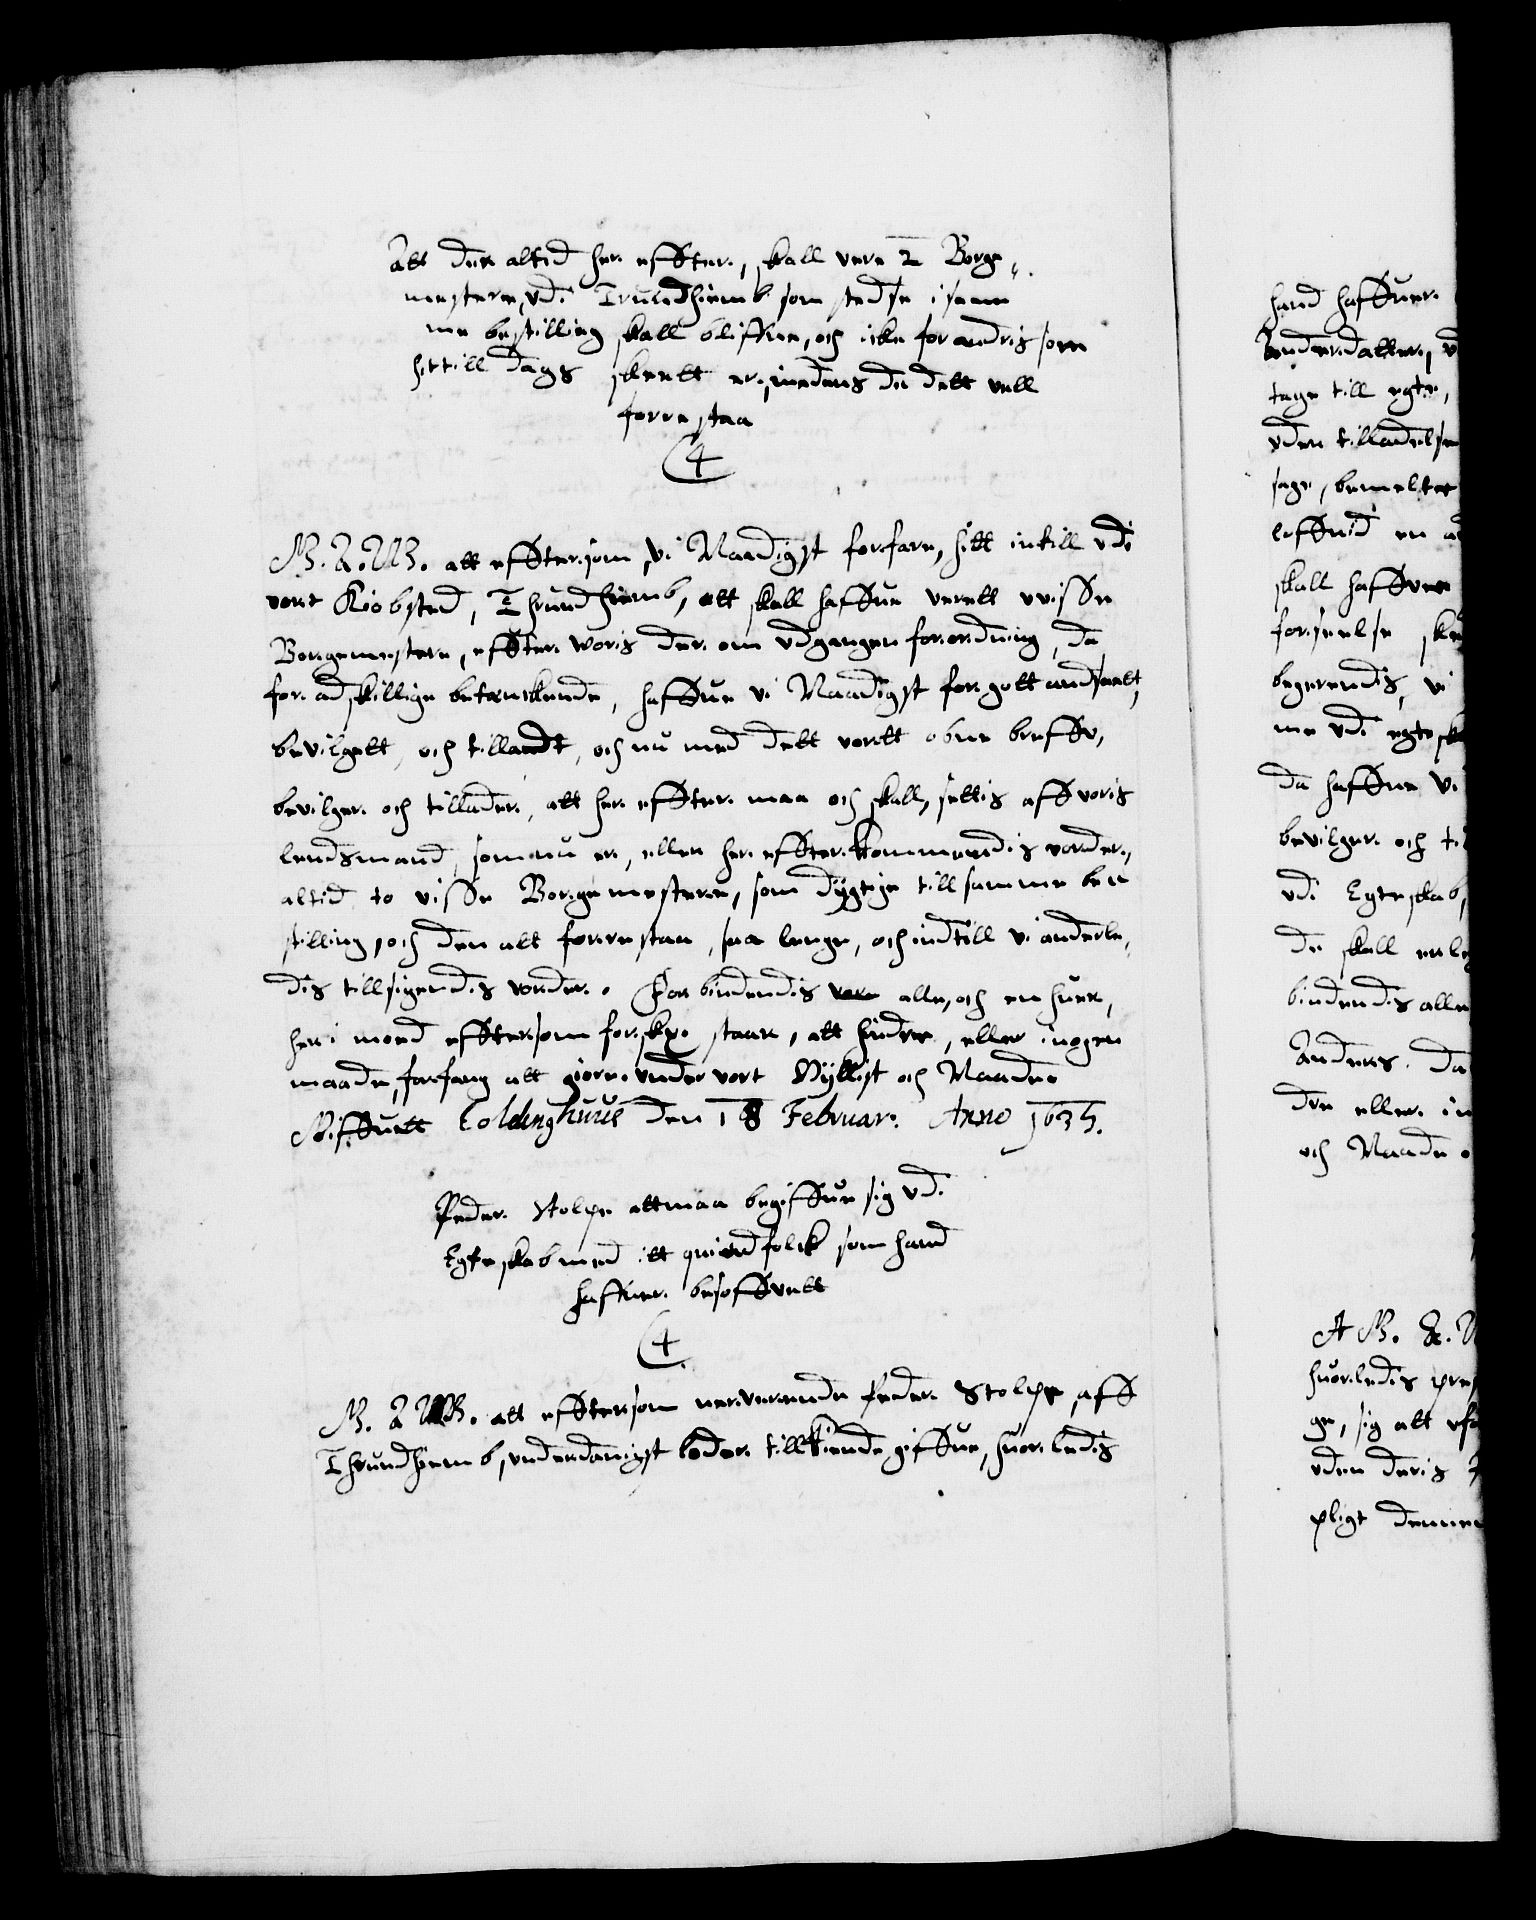 Att der altid her effter, skall vere 2 Borge„
mestere, vdi Trundhiemb som stedse i sam
me bestilling skall bliffue, och icke forandris som
hertill dags skeett er, medens de dett vell
forre staa
G. A. W. att efftersom, vi Naadigst forfare, hitt intill vdi
vort Kiøbsted, Thrundhiemb, att skall haffue verett wisse
Borgemestere, effter woris der om vdgangen forordning, da
for adskillige betenckende, haffue vi Naadigst for gott andseelt,
bevilgett, och tilladt, och nu med dett vortt obne breff,
bevilger och tillader, att her effter maa och skall, settis aff voris
lendsmand, som nu er, eller her effter kommendis vorder,
altid to visse Borgemestere, som dygtige till samme be
stilling, och den att forrestaa, saa lenge, och indtill vi anderle,
dis tillsigendis vorder. Forbindendis vere alle, och en huer,
her i moed efftersom forskr. staar, att hindre, eller i nogen
maade, forfang att giøre. vnder vort Hyllist och Naade
Giffuett Coldinghuus den 18 Februar. Anno 1635.
Peder Stolpe att maa begiffue sig vdi
Egteskab med itt quindfolck som hand
haffuer besoffuett
G. A. W. att efftersom nerverende Peder Stolpe, aff
Thrundhiemb, vnderdanigst lader tillkiende giffue, huorledis
hand haffuer
tage till egte,
vden tilladelse
sage, bemelte
skall haffue
forseelse
begerendis, vi
me vdi egtesk
da haffue vi
bevilger och ti
vdi Egteskab,
de skall
bindendis alle
Anders. Da
dre eller in
och Naade
huorledis
ge, sig att
vden deris
pligt